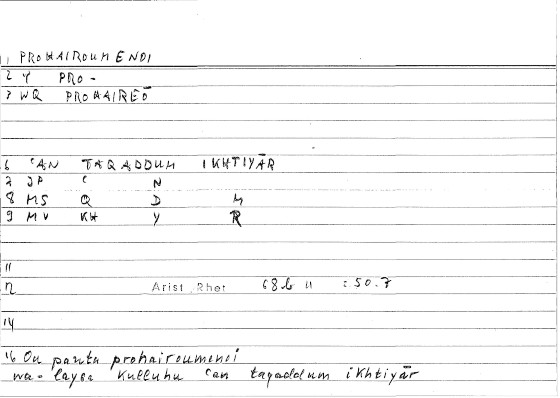 1 PROHAIROUMENOI
2 Y PRO-
3 WQ PROHAIREŌ
6 ʿAN TAQADDUM IKHTIYĀR
7 JP ʿ N
8 MS Q D M
9 MV KH Y R
11
12 Arist. Rhet 68b 11 : 50.7
14
16 Ou panta prohairoumenoi
wa-laysa kulluhu ʿan taqaddum ikhtiyār